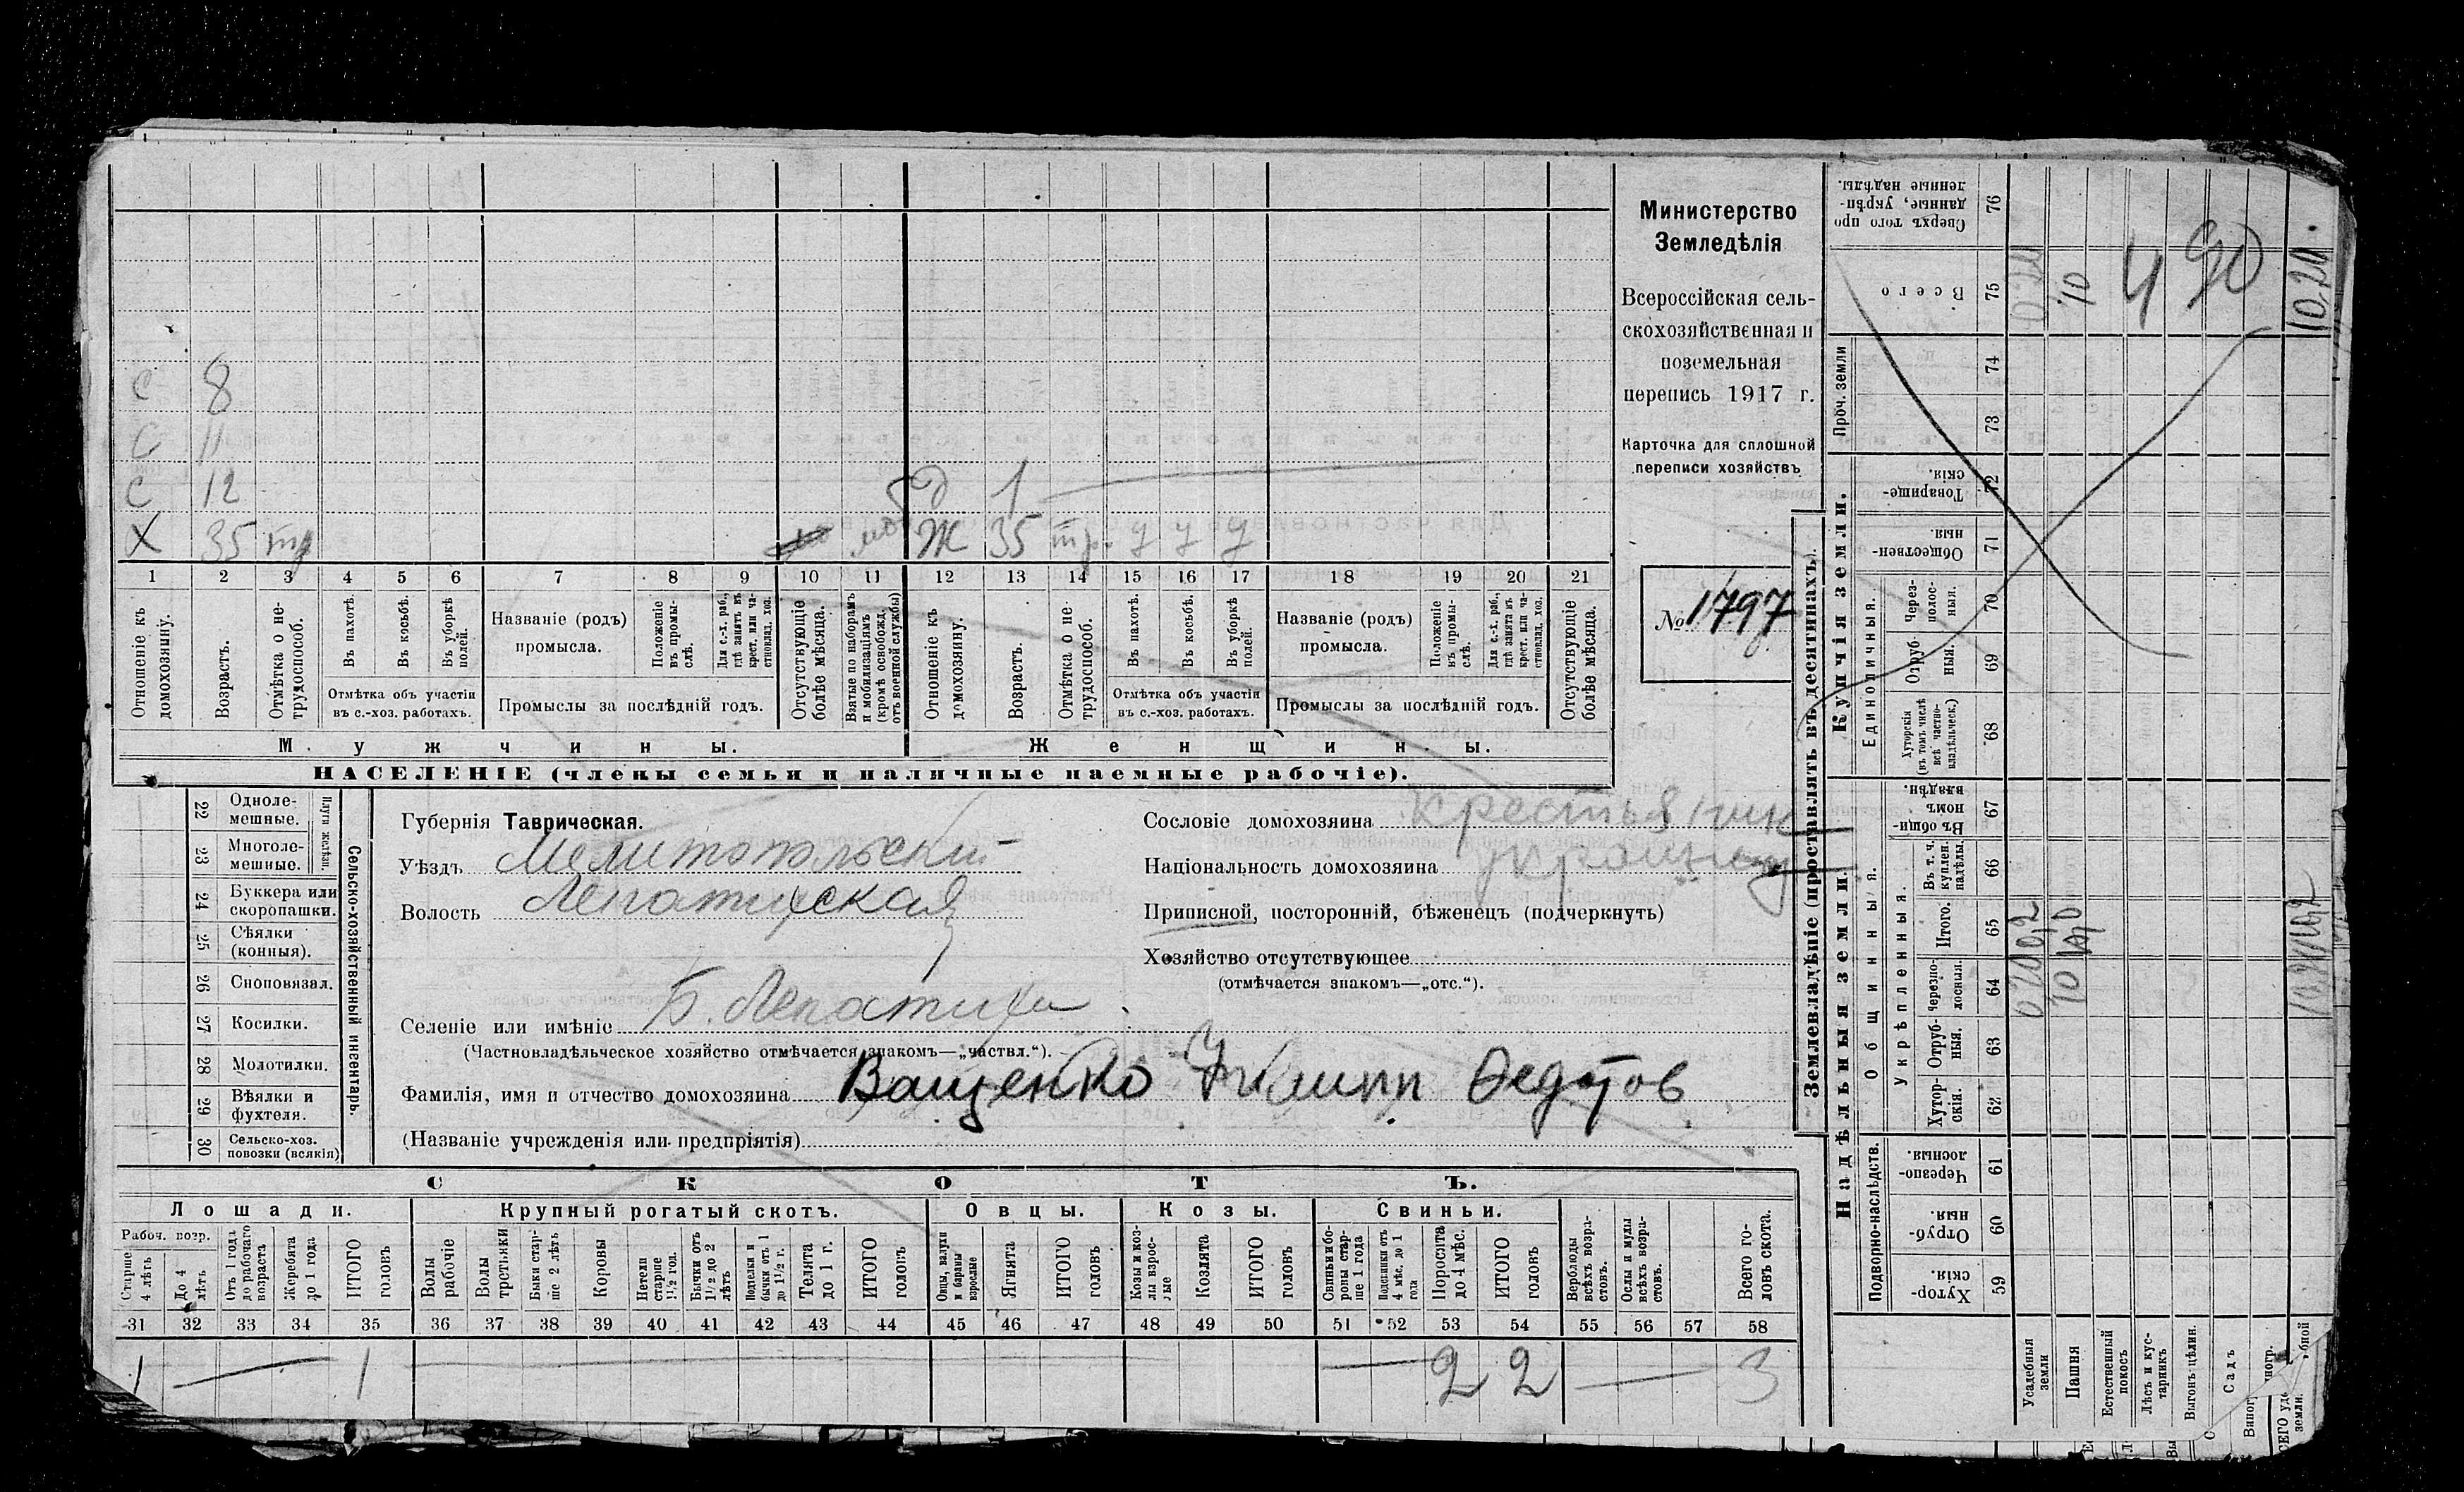 С 8
С 11
С 12 д 1
Х 35 тр моб Ж 35 тр. у у у
1 2 3 4 5 6 7 8 9 10 11 12 13 14 15 16 17 18 19 20 21
Отношеніе къ домохозяину.
Возрастъ.
Отмѣтка о нетрудоспособ.
Въ пахотѣ.
Въ косьбѣ.
Въ уборкѣ полей.
Отмѣтка объ участіи
въ с.-хоз. работахъ.
Названіе (родъ)
промысла.
Положеніе въ промыслѣ.
Для с.-х. раб., гдѣ занятъ въ крест. или частновлад. хоз.
Промыслы за послѣдній годъ.
Отсутствующіе болѣе мѣсяца.
Взятые по наборамъ и мобилизаціямъ (кромѣ освобожд. отъ военной службы)
Отношеніе къ домохозяину.
Возрастъ.
Отмѣтка о нетрудоспособ.
Въ пахотѣ.
Въ косьбѣ.
Въ уборкѣ полей.
Отмѣтка объ участіи
въ с.-хоз. работахъ.
Названіе (родъ)
промысла.
Положеніе въ промыслѣ.
Для с.-х. раб., гдѣ занята въ крест. или частновлад. хоз.
Промыслы за послѣдній годъ.
Отсутствующіе болѣе мѣсяца.
Мужчины.
Женщины.
НАСЕЛЕНІЕ (члены семьи и наличные наемные рабочіе).
Министерство
Земледѣлія
Всероссійская сель-
скохозяйственная и
поземельная
перепись 1917 г.
Карточка для сплошной
переписи хозяйствъ
№ 1797
Сельско-хозяйственный инвентарь.
22 Одноле-
мешные.
23 Многоле-
мешные.
24 Буккера или
скоропашки.
25 Сѣялки
(конныя).
26 Сноповязал.
27 Косилки.
28 Молотилки.
29 Вѣялки и
фухтеля.
30 Сельско-хоз.
повозки (всякія)
Губернія Таврическая.
Уѣздъ Мелитопольский
Волость Лепатихская
Селеніе или имѣніе Б. Лепатиха
(Частновладѣльческое хозяйство отмѣчается знакомъ—„частвл.“).
Фамилія, имя и отчество домохозяина Ващенко Филипп Федотов
(Названіе учрежденія или предпріятія)
Сословіе домохозяина крестьянин
Національность домохозяина украинец
Приписной, посторонній, бѣженецъ (подчеркнуть)
Хозяйство отсутствующее
(отмѣчается знакомъ—„отс.“).
СКОТЪ.
Лошади. Крупный рогатый скотъ. Овцы. Козы. Свиньи.
Рабоч. возр.
Старше 4 лѣтъ
До 4 лѣтъ
Отъ 1 года до рабочаго возраста
Жеребята до 1 года
ИТОГО головъ
Волы рабочіе
Волы третьяки
Быки старше 2 лѣтъ
Коровы
Нетели старше 1½ год.
Бычки отъ 1½ до 2 лѣтъ
Подтелки и бычки отъ 1 до 1½ г.
Телята до 1 г.
ИТОГО головъ
Овцы, валухи и бараны взрослые
Ягнята
ИТОГО головъ
Козы и козлы взрослые
Козлята
ИТОГО головъ
Свиньи и боровы старше 1 года
Подсвинки отъ 4 мѣс. до 1 года
Поросята до 4 мѣс.
ИТОГО головъ
Верблюды всѣхъ возрастовъ.
Ослы и мулы всѣхъ возрастовъ.
Всего головъ скота.
31 32 33 34 35 36 37 38 39 40 41 42 43 44 45 46 47 48 49 50 51 52 53 54 55 56 57 58
1 — 1 — — 2 2 — 3
Землевладѣніе (проставлять въ десятинахъ).
Купчія земли.
Надѣльныя земли.
Сверхъ того проданные, укрѣпленные надѣлы. 76
Всего 75 10 4 90 10,20
Проч. земли 74
73
Товарищескія 72
Общественныя 71
Единоличныя.
Черезполосныя. 70
Отрубныя. 69
Хуторскія (въ томъ числѣ всѣ частновладѣльческ.) 68
Общинныя.
Въ общинномъ владѣн. 67
Укрѣпленныя.
Въ т. ч. куплен. надѣлы. 66
Итого. 65
Черезполосныя. 64
Отрубныя. 63
Хуторскія. 62
Подворно-наслѣдств.
Черезполосныя. 61
Отрубныя 60
Хуторскія. 59
Усадебныя земли
Пашня
Естественный покосъ
Лѣсъ и кустарникъ
Выгонъ цѣлин.
Садъ